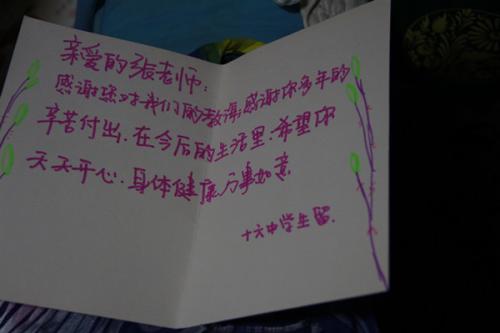 亲爱的张老师：
感谢您对我们的教诲,感谢你多年的
辛苦付出.在今后的生活里.希望你
天天开心.身体健康万事如意
十六中学生留.